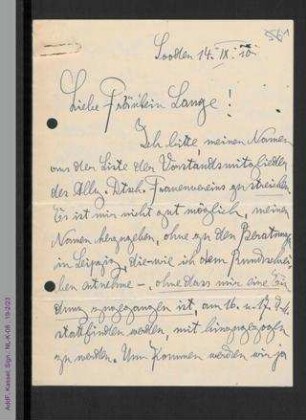 561
Sooden 14. IX. 10.
Liebe Fräulein Lange!
Ich bitte, meinen Namen
aus der Liste der Vorstandsmitglieder
des Allg. Dtsch. Frauenvereins zu streichen
Es ist mir nicht gut möglich, meinen
Namen herzugeben, ohne zu den Beratungen
in Leipzig, die - wie ich dem Rundschrei-
ben entnehme -, ohne dass mir eine Ein-
dung zugegangen ist, am 16. u. 17. d. M.
stattfinden werden, mit hinzugezogen
zu werden. Um kommen werden wir ja
AddF, Kassel, Sign. NL-K-08 ; 19-2/23